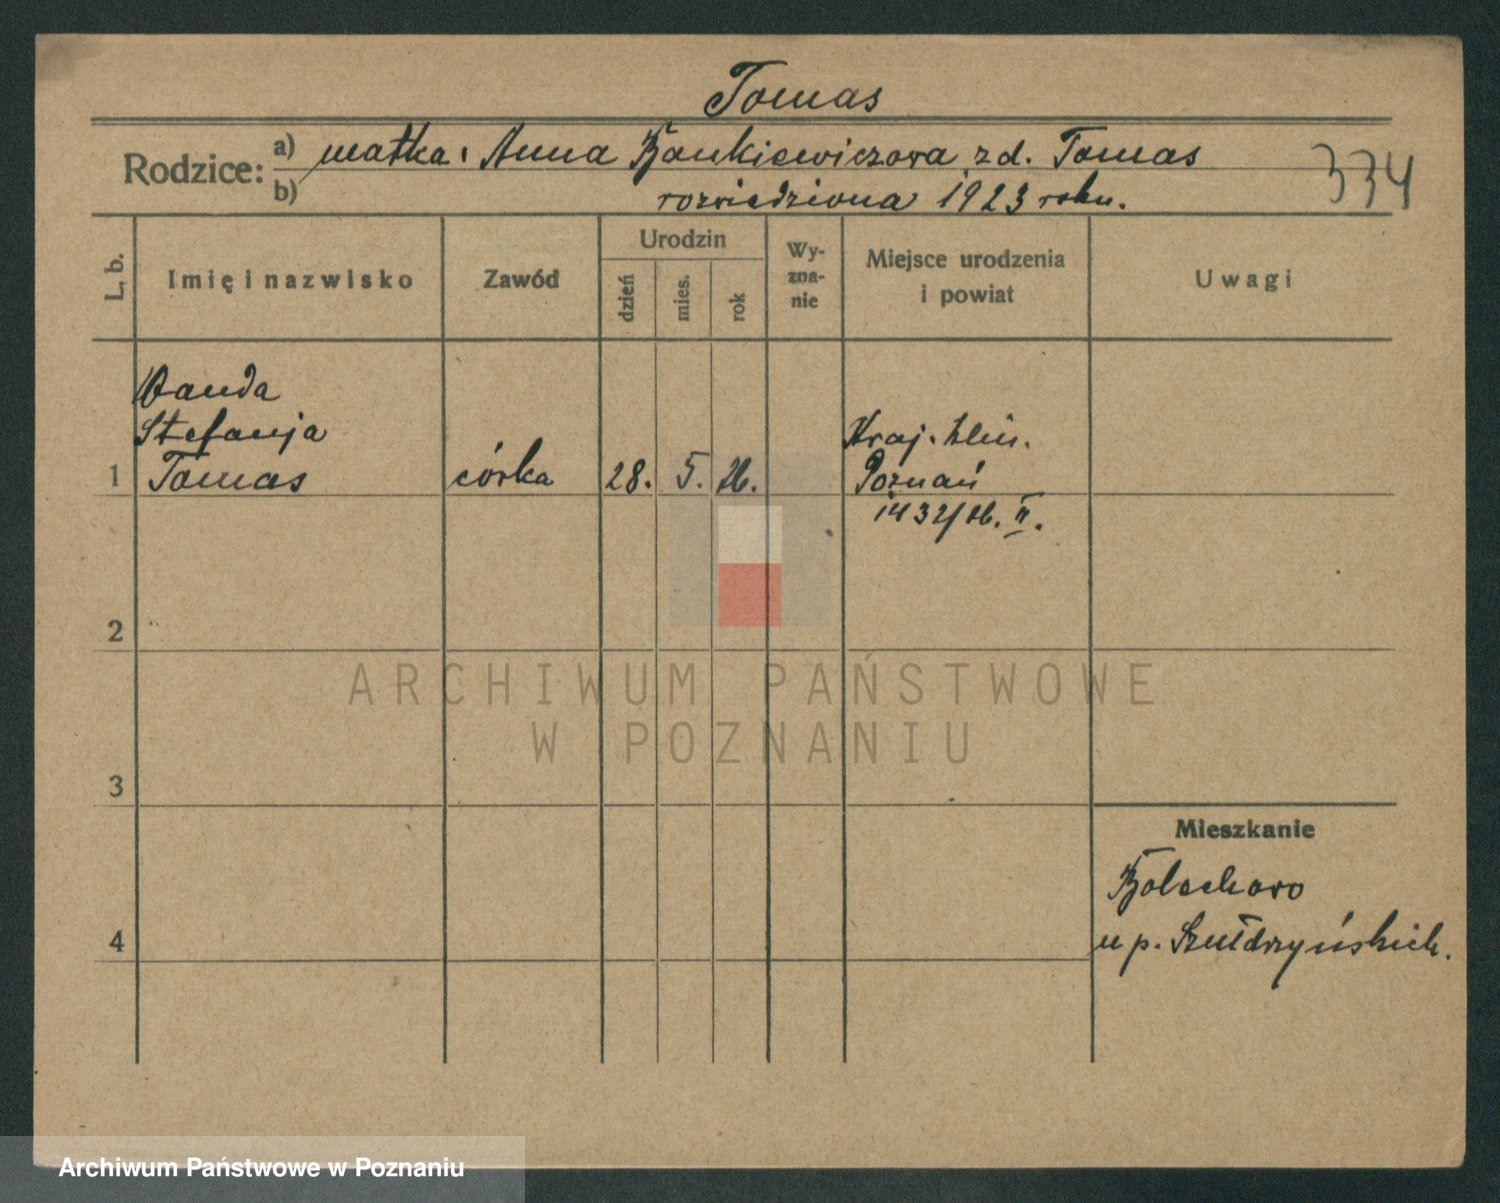 Tomas
Rodzice: a) matka: Anna Bankiewiczowa zd. Tomas
b) rozwiedziona 1923 roku.
334
L. b.
Imię i nazwisko
Zawód
Urodzin
dzień
mies.
rok
Wy-
zna-
nie
Miejsce urodzenia
i powiat
Uwagi
Wanda
Stefanja
1 Tomas córka 28. 5. 26.
Kraj. klin.
Poznań
1432/26. II.
2
3
4
Mieszkanie
Bolechowo
u p. Szułdrzyńskich.
ARCHIWUM PAŃSTWOWE
W POZNANIU
Archiwum Państwowe w Poznaniu